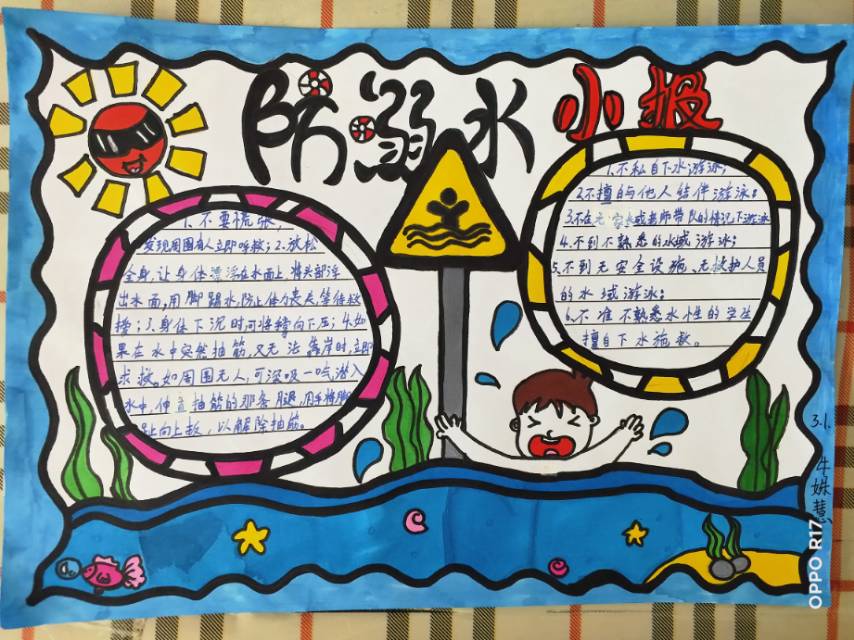 防溺水小报
1.不要慌张,
发现周围有人立即呼救;2.放松
全身,让身体漂浮在水面上,将头部浮
出水面,用脚踢水,防止体力丧失,等待救
援;3.身体下沉时可将掌向下压;4.如
果在水中突然抽筋,又无法靠岸时,立即
求救。如周围无人,可深吸一口气潜入
水中,伸直抽筋的那条腿,用手将脚
趾向上扳,以解除抽筋。
1.不私自下水游泳;
2.不擅自与他人结伴游泳。
3.不在无家长或老师带队的情况下游泳
4.不到不熟悉的水域游泳;
5.不到无安全设施、无救护人员
的水域游泳;
6.不准不熟悉水性的学生
擅自下水施救。
3.1.
牛姝慧
OPPO R17